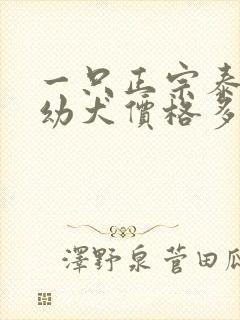 一只正宗泰
幼犬價格多
澤野泉菅田